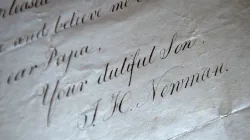 and believe me
ear Papa,
Your dutiful Son,
J. H. Newman.